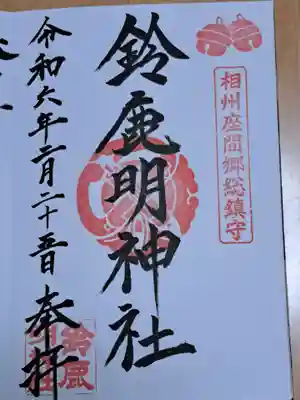 相州座間郷総鎮守
鈴鹿明神社
令和六年二月二十五日 奉拝
鈴鹿